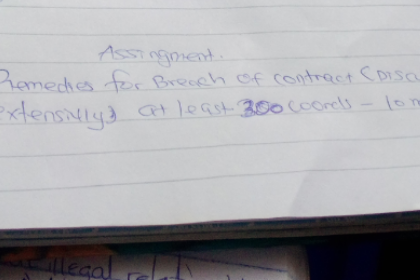 Assingment.
Remedies for Breach of contract (Disc
extensively) at least 300 words - 10 m
illegal